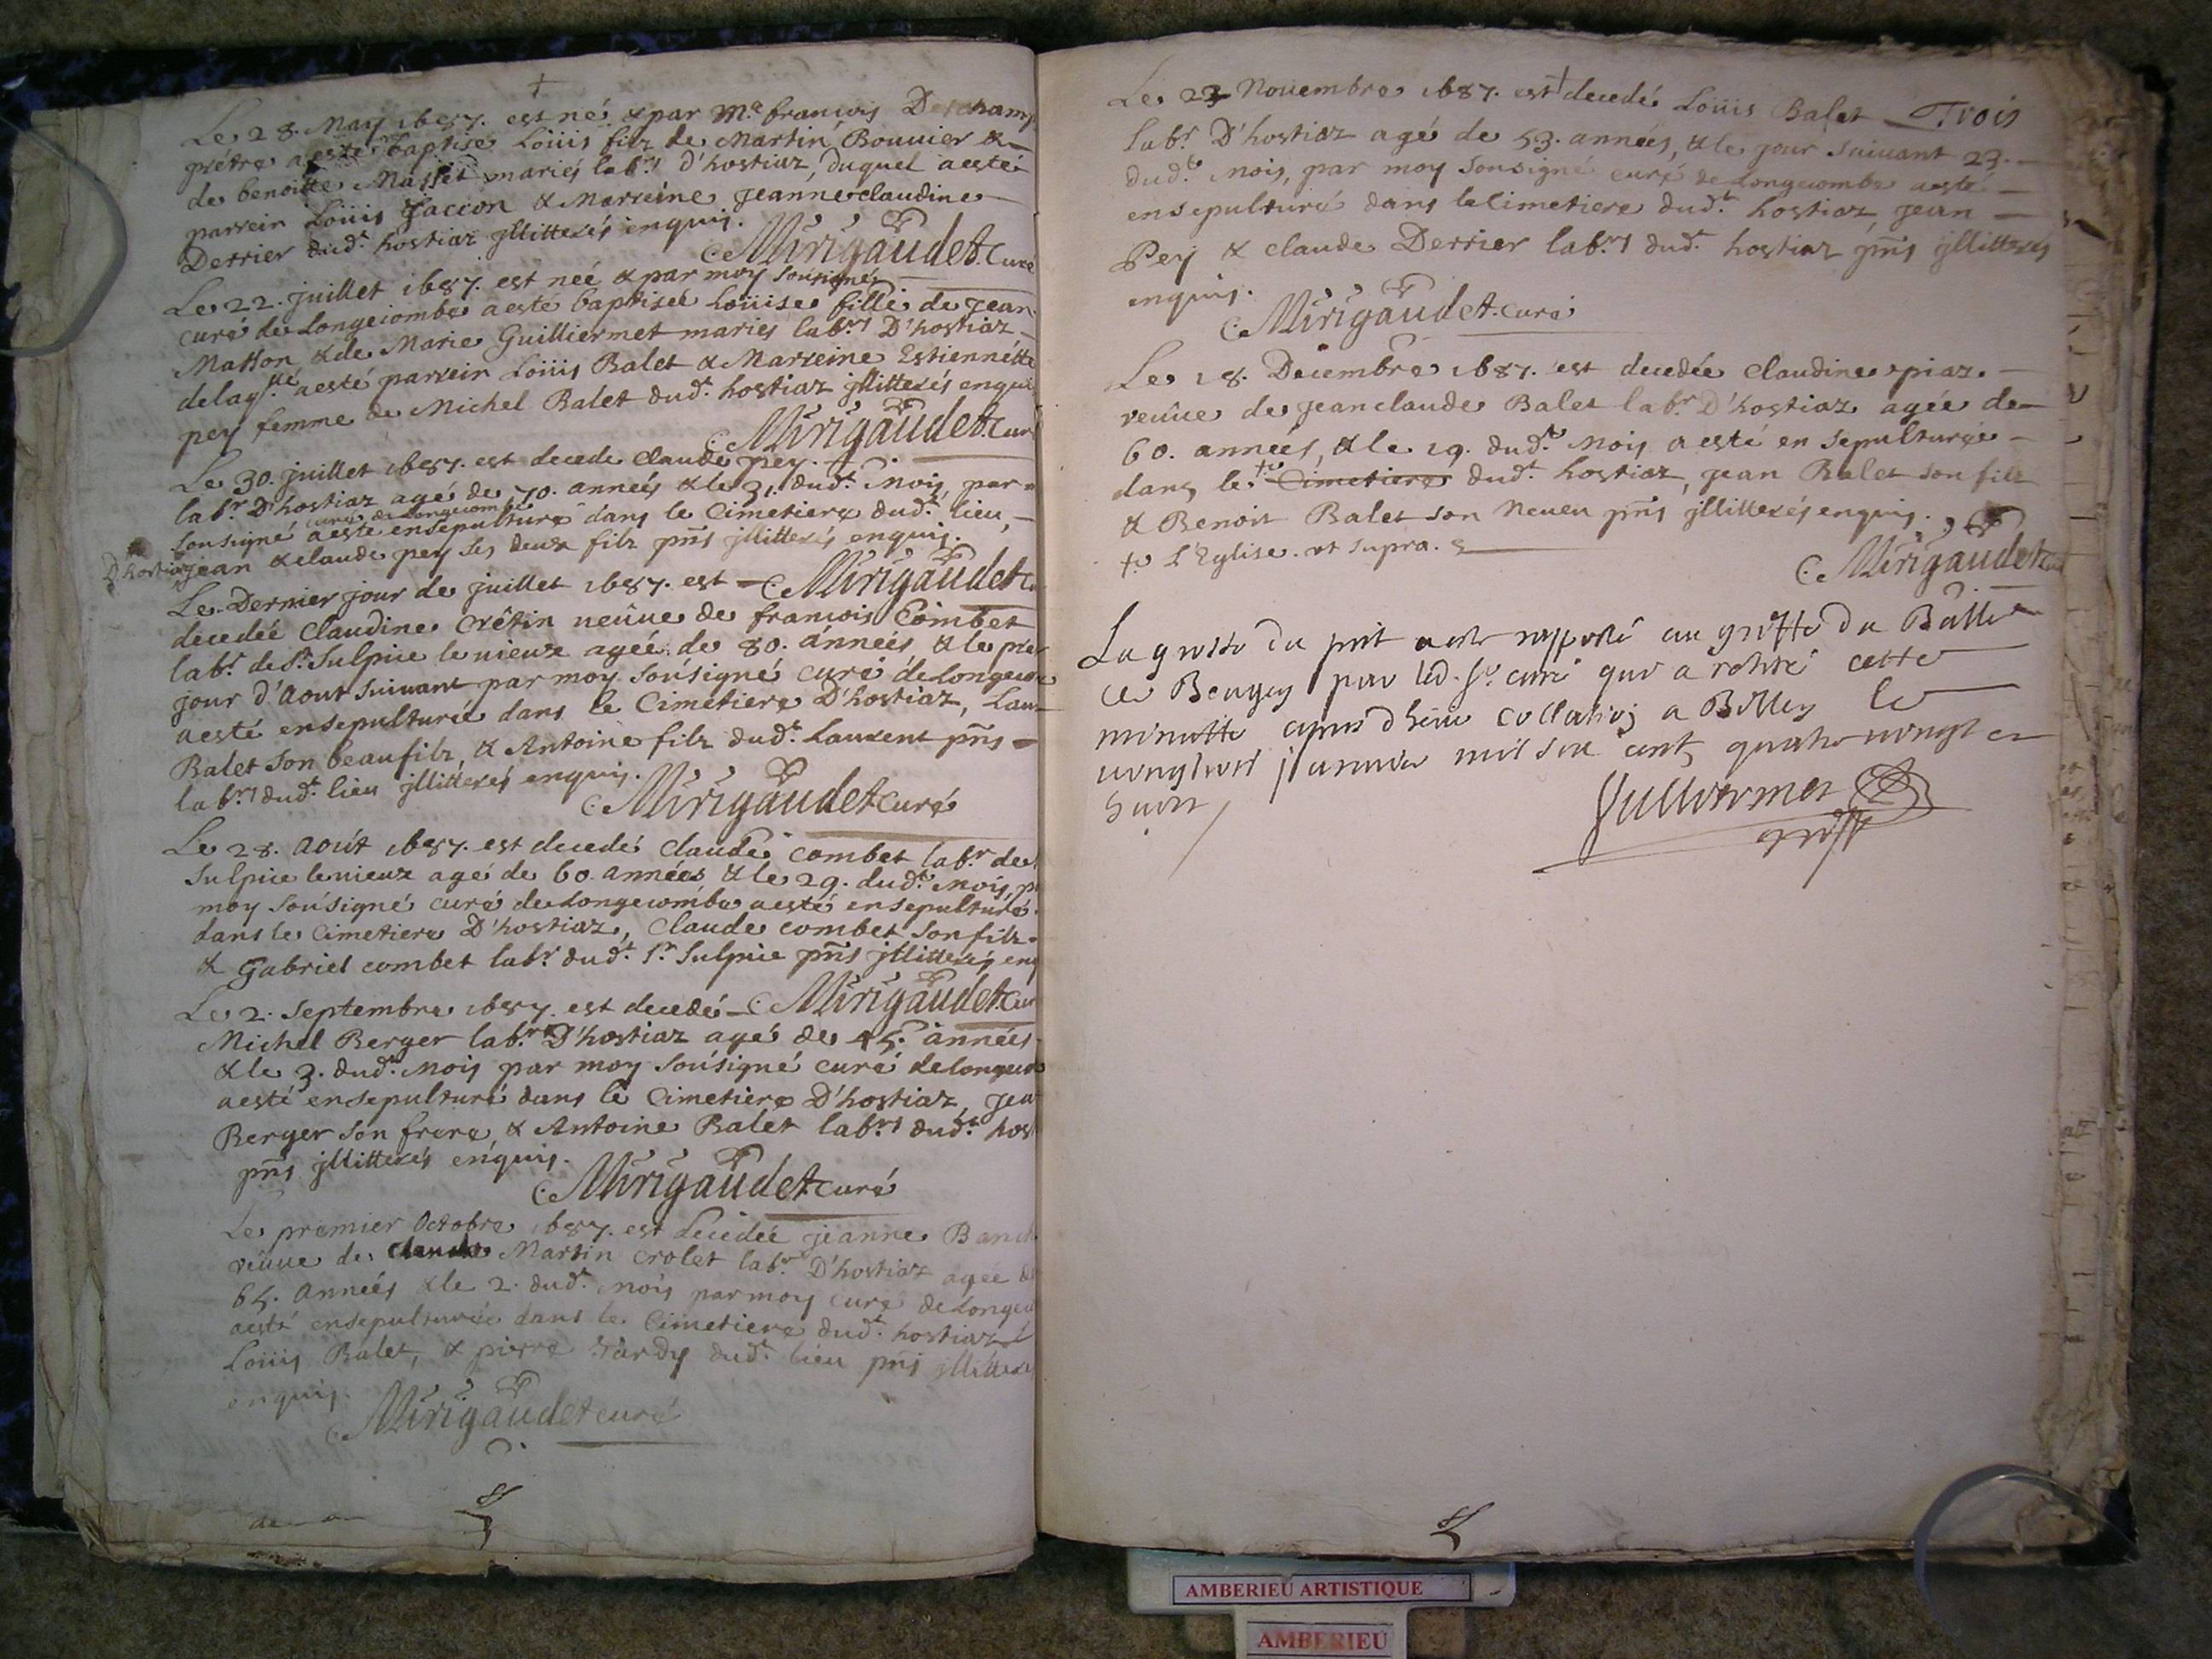 Le 28. May 1687. est né & par Me françois Deschamp
prétre a esté baptisé Loüis filz de Martin Bouuier &
de benoitte Masset mariés labrs d'hostiaz, duquel a esté
parrein Loüis Jacion & Marreine Jeanne claudine
Derrier dudt hostiaz jllitterés enquis.
C. Mirigaudet Curé
Le 22. juillet 1687. est neé & par moy soussigné
curé de Longecombe a esté baptiseé Loüise fille de Jean
Matton & de Marie Guilliermet mariés labrs D'hostiaz
delaqlle a esté parrein Loüis Balet & Marreine Estiennétte
pey femme de Michel Balet dudt hostiaz jllitterés enqui
C. Mirigaudet Cur
Le 30. juillet 1687. est decedé claude pey
labr D'hostiaz agé de 70. années & le 31. dudt Mois, par
sousigné curé de Longecombe a esté ensepulturé dans le Cimetiere dudt lieu,
D'hostiaz jean & claude pey ses deux filz pñts jllitterés enquis.
C. Mirigaudet C
Le Dernier jour de juillet 1687. est
decedéé Claudine Crêtin veûue de françois Combet
labr de St Sulpice le vieux agéé de 80. années & le pre
jour d'Aout suiuant par moy soúsigné curé de Longecom
a esté ensepulturéé dans le Cimetiere D'hostiaz, Lau
Balet son beaufilz, & Antoine filz dudt Laurent pñts
labrs dudt lieu jllitterés enquis.
C. Mirigaudet Curé
Le 28. Aoút 1687. est decedé Claude combet labr de
Sulpice le vieux agé de 60. années & le 29. dudt Mois, p
moy soúsigné curé de Longecombe a esté ensepulturé
dans le Cimetiere D'hostiaz, Claude combet son filz
& Gabriel combet labr dudt St Sulpice pñts jllitterés enq
Le 2. Septembre 1687. est decedé
C. Mirigaudet Cur
Michel Berger labr D'hostiaz agé de 45. années
& le 3. dudt Mois par moy soúsigné curé de longeco
a esté ensepulturé dans le Cimetiere D'hostiaz, Jea
Berger son frere, & Antoine Balet labrs dudt host
pñts jllitterés enquis.
C. Mirigaudet Curé
Le premier Octobre 1687. est decedéé jeanne Banch
veûue de Claude Martin Crolet labr D'hostiaz agéé de
65. Années & le 2. dudt mois par moy curé de Longeco
a esté ensepulturéé dans le Cimetiere dudt hostiaz
Loüis Balet, & pierre Tardy dudt lieu pñts jlliteré
enquis.
C. Mirigaudet Curé
Trois
Le 22 Nouembre 1687. est decedé Loüis Balet
labr D'hostiaz agé de 53. années, & le jour suiuant 23.
dudt Mois, par moy sousigné curé de Longecombe a esté
ensepulturé dans le Cimetiere dudt hostiaz, jean
Pey & claude Derrier labrs dudt hostiaz pñts jllitterés
enquis.
C. Mirigaudet Curé
Le 18. Decembre 1687. est decedéé Claudine piaz
veûue de Jean claude Balet labr D'hostiaz agéé de
60. années, & le 19. dudt Mois a esté ensepulturéé
dans le + Cimetiere dudt hostiaz, jean Balet son filz
& Benoit Balet son Neueu pñts jllitterés enquis.
+ L'Eglise. vt supra.
C. Mirigaudet Cu
La grosse du pnt a este rapporté au greffe du Balliage
de Beugey par led. Sr curé qui a retiré cette
minutte apres dheue collation a Belley le
vingtroi januier mil six cent quatre vingt et
huict
Guilliermet
greff
AMBERIEU ARTISTIQUE
AMBERIEU